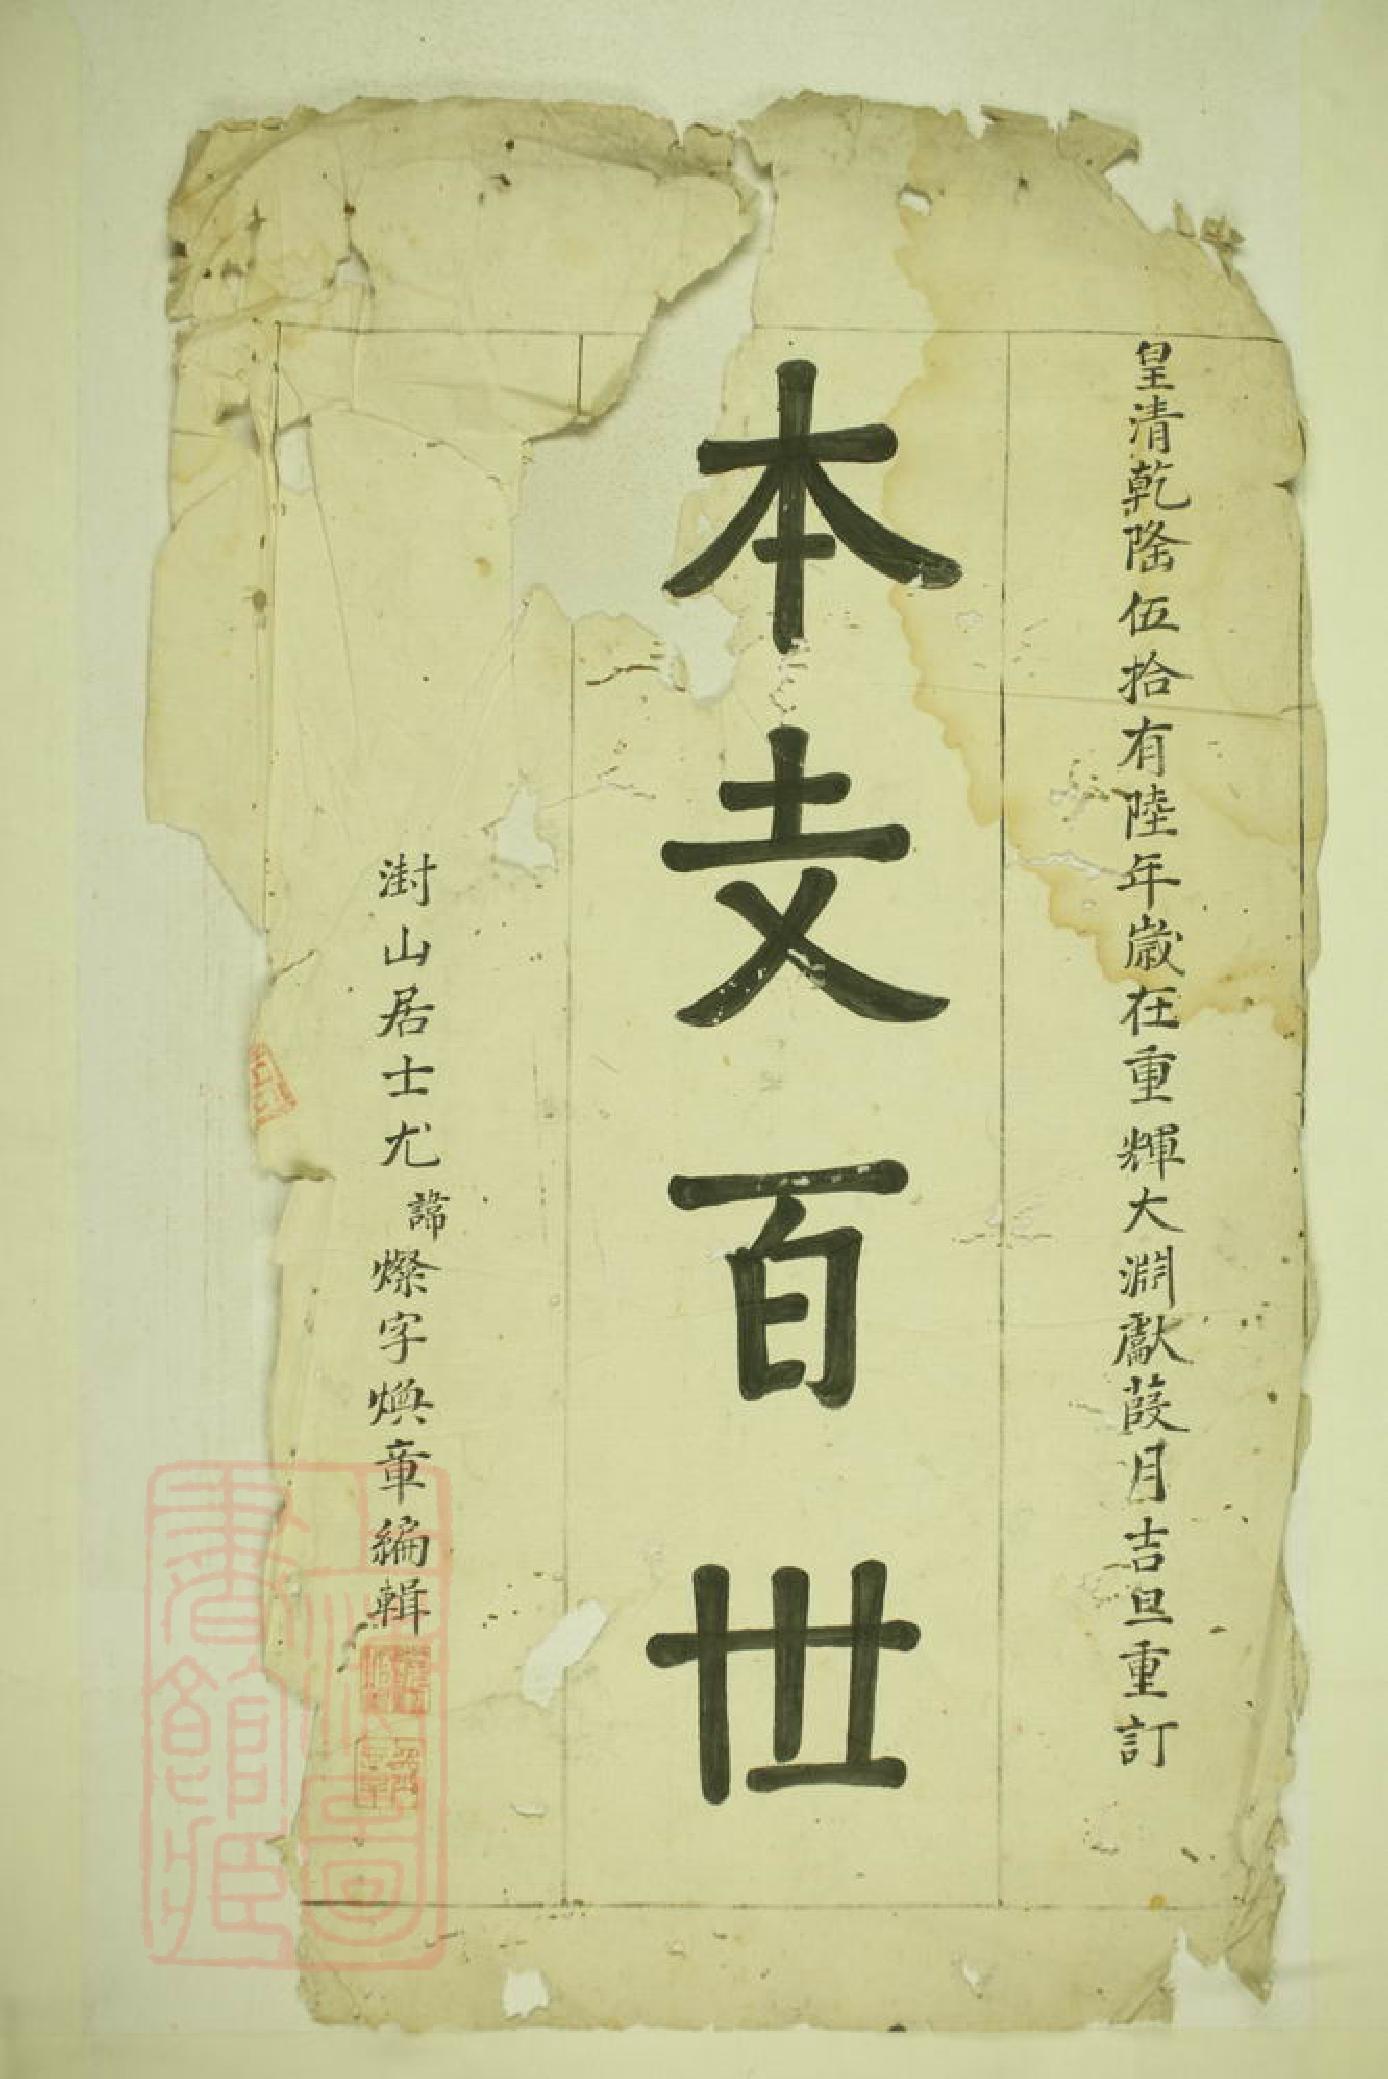 皇清乾隆伍拾有陸年歲在重輝大淵獻葭月吉旦重訂
本支百世
澍山居士尤諦燦字煥章編輯
上海圖書館藏